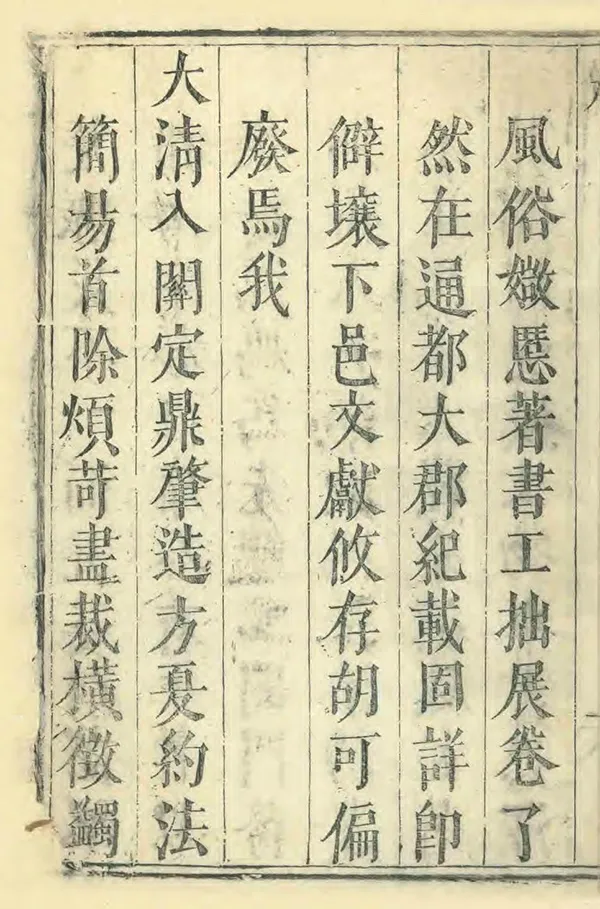 風俗媺慝著書工拙展卷了
然在通都大郡紀載固詳卽
僻壤下邑文獻攸存胡可偏
廢焉我
大清入關定鼎肇造方夏約法
簡易首除煩苛盡裁橫徵蠲